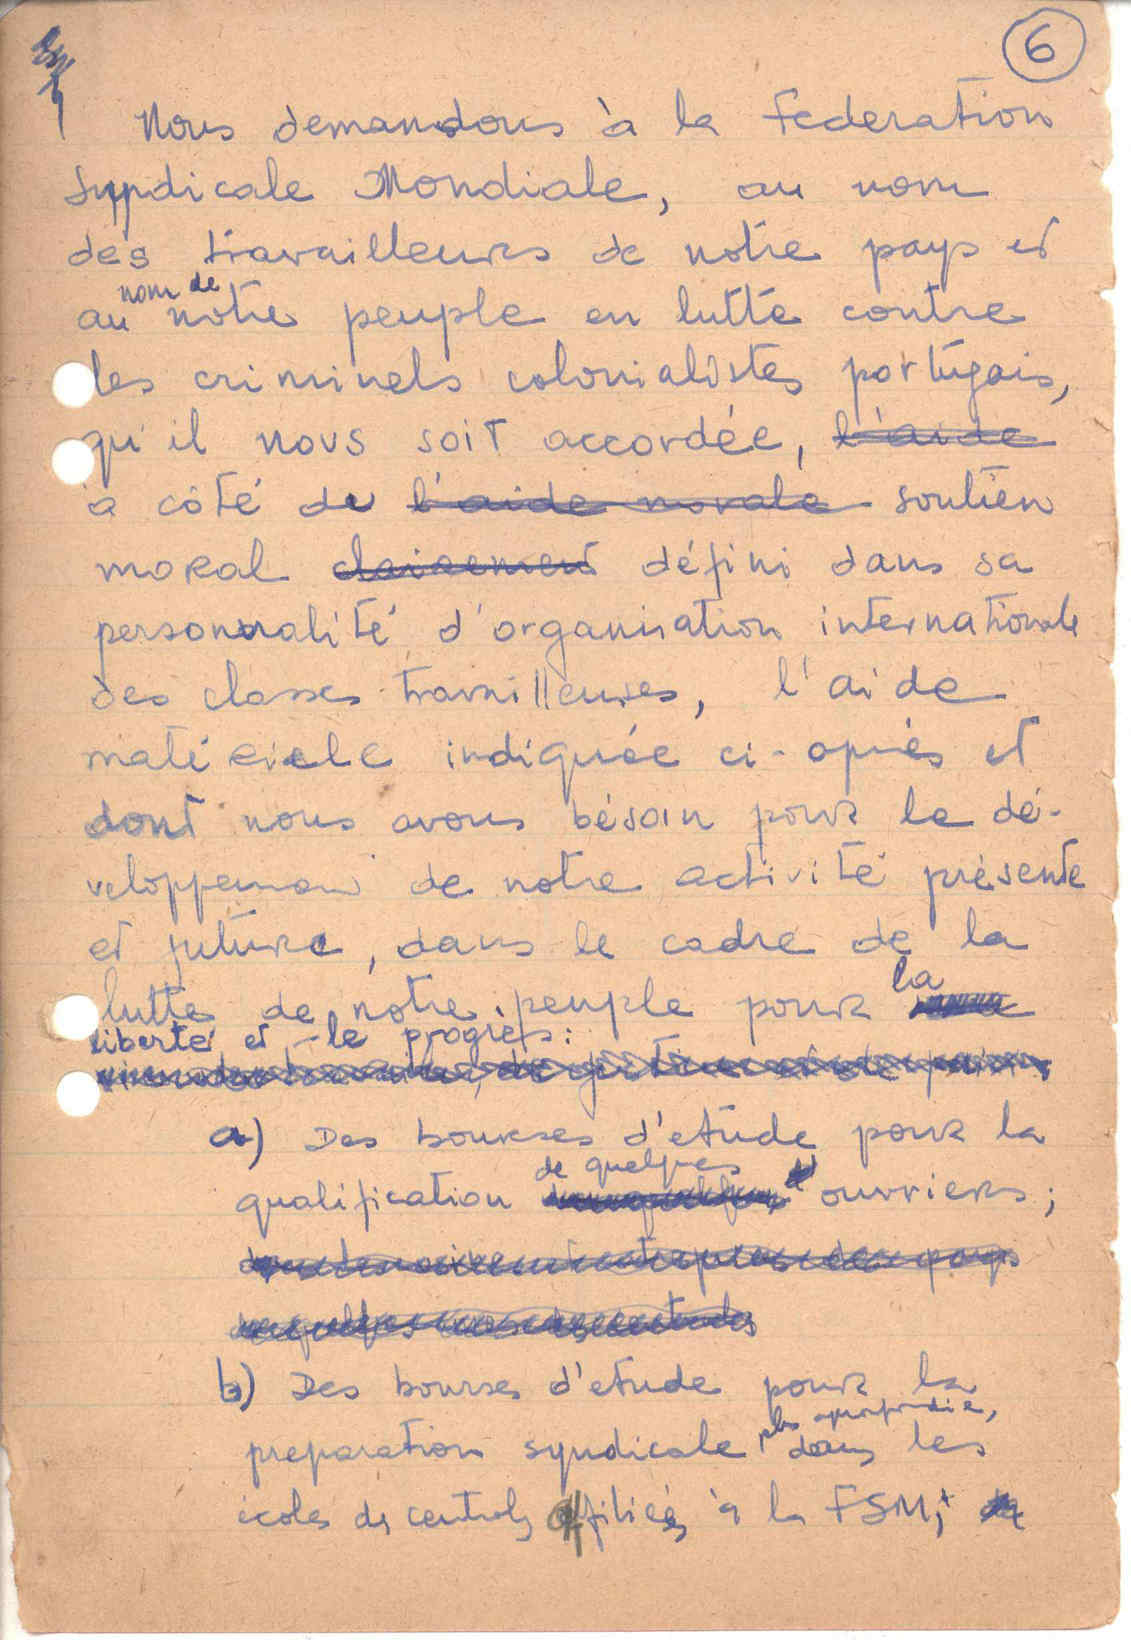 6
Nous demandons à la Federation
Syndicale Mondiale, au nom
des travailleurs de notre pays et
nom de
au notre peuple en lutte contre
les criminels colonialistes portugais,
qu'il nous soit accordée, l'aide
à côté du l'aide morale soutien
moral clairement défini dans sa
personnalité d'organisation internationale
des classes travailleuses, l'aide
matérielle indiquée ci-après et
dont nous avons bésoin pour le dé-
veloppement de notre activité présente
et future, dans le cadre de la
lutte de notre peuple pour la
liberté et le progrès:
a) Des bourses d'etude pour la
de quelques
qualification ouvriers;
b) Des bourses d'etude pour la
plus aprofondie,
preparation syndicale dans les
écoles de centrales affiliées à la FSM;